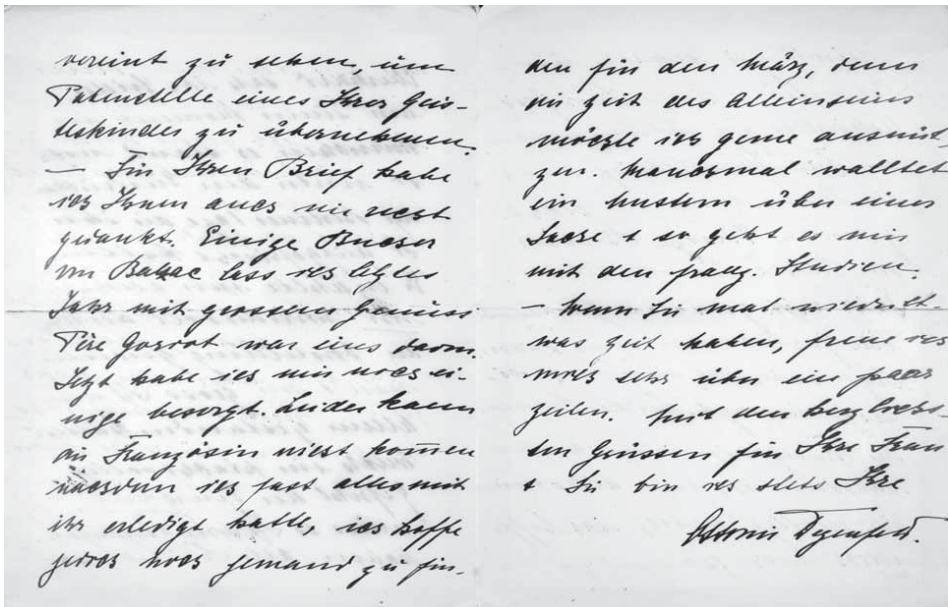 vereint zu sehen, um
Patenstelle eines Ihrer Geis-
teskindes zu übernehmen.
— Für Ihren Brief habe
ich Ihnen auch nie recht
gedankt. Einige Bücher
von Balzac lass ich letztes
Jahr mit grossem Genuss
Père Goriot war eins davon.
Jetzt habe ich mir noch ei-
nige besorgt. Leider kann
die Französin nicht kom̅en
nachdem ich fast alles mit
ihr erledigt hatte, ich hoffe
jedoch noch jemand zu fin-
den für den März, denn
die Zeit des Alleinseins
möchte ich gerne ausnüt-
zen. Manchmal walltet
ein Unstern über einer
Sache + so geht es mir
mit den franz. Studien.
— Wenn Sie mal wieder et-
was Zeit haben, freue ich
mich sehr über ein paar
Zeilen. Mit den herzlichs-
ten Grüssen für Ihre Frau
+ Sie bin ich stets Ihre
Ottonie Degenfeld.